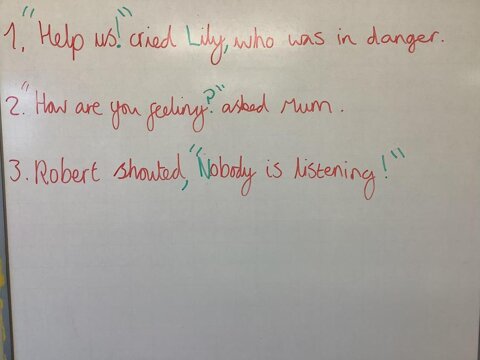 1. "Help us!" cried Lily, who was in danger.
2. "How are you feeling?" asked Mum.
3. Robert shouted, "Nobody is listening!"